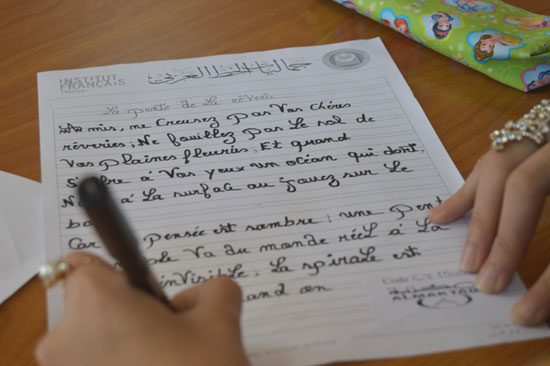 INSTITUT
FRANÇAIS
جماليات الخط العربي
La pente de La rêverie
mis, ne Creusez Pas Vos Chères
rêveries; Ne fouillez Pas Le sol de
Vos Plaines fleuries; Et quand
à Vos yeux un océan qui dort,
à La surface au jouez sur Le
Car Pensée est sambre! une Pent
Va du monde réel à La
inVisible; La spirale est
and on
Code C.T.
ALMAKTAB